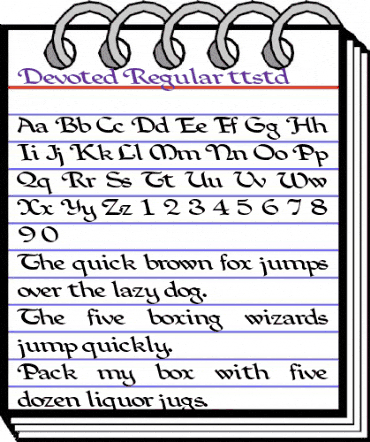 Devoted Regular ttstd
Aa Bb Cc Dd Ee Ff Gg Hh
Ii Jj Kk Ll Mm Nn Oo Pp
Qq Rr Ss Tt Uu Vv Ww
Xx Yy Zz 1 2 3 4 5 6 7 8
9 0
The quick brown fox jumps
over the lazy dog.
The five boxing wizards
jump quickly.
Pack my box with five
dozen liquor jugs.